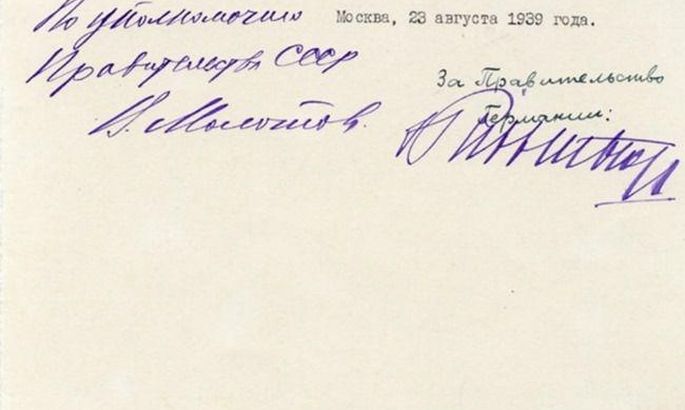 По уполномочию
Правительства СССР
В. Молотов.
Москва, 23 августа 1939 года.
За Правительство
Германии: